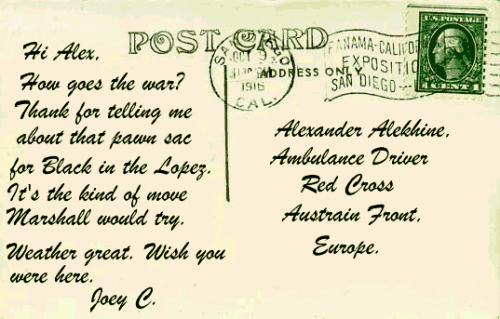 POST CARD
Hi Alex,
How goes the war?
Thank for telling me
about that pawn sac
for Black in the Lopez.
It's the kind of move
Marshall would try.
Weather great. Wish you
were here.
Joey C.
OCT 9
1916
CAL.
PANAMA-CALIFO
EXPOSITIO
SAN DIEGO
U.S. POSTAGE
1 CENT 1
ADDRESS ONLY
Alexander Alekhine,
Ambulance Driver
Red Cross
Austrain Front,
Europe.